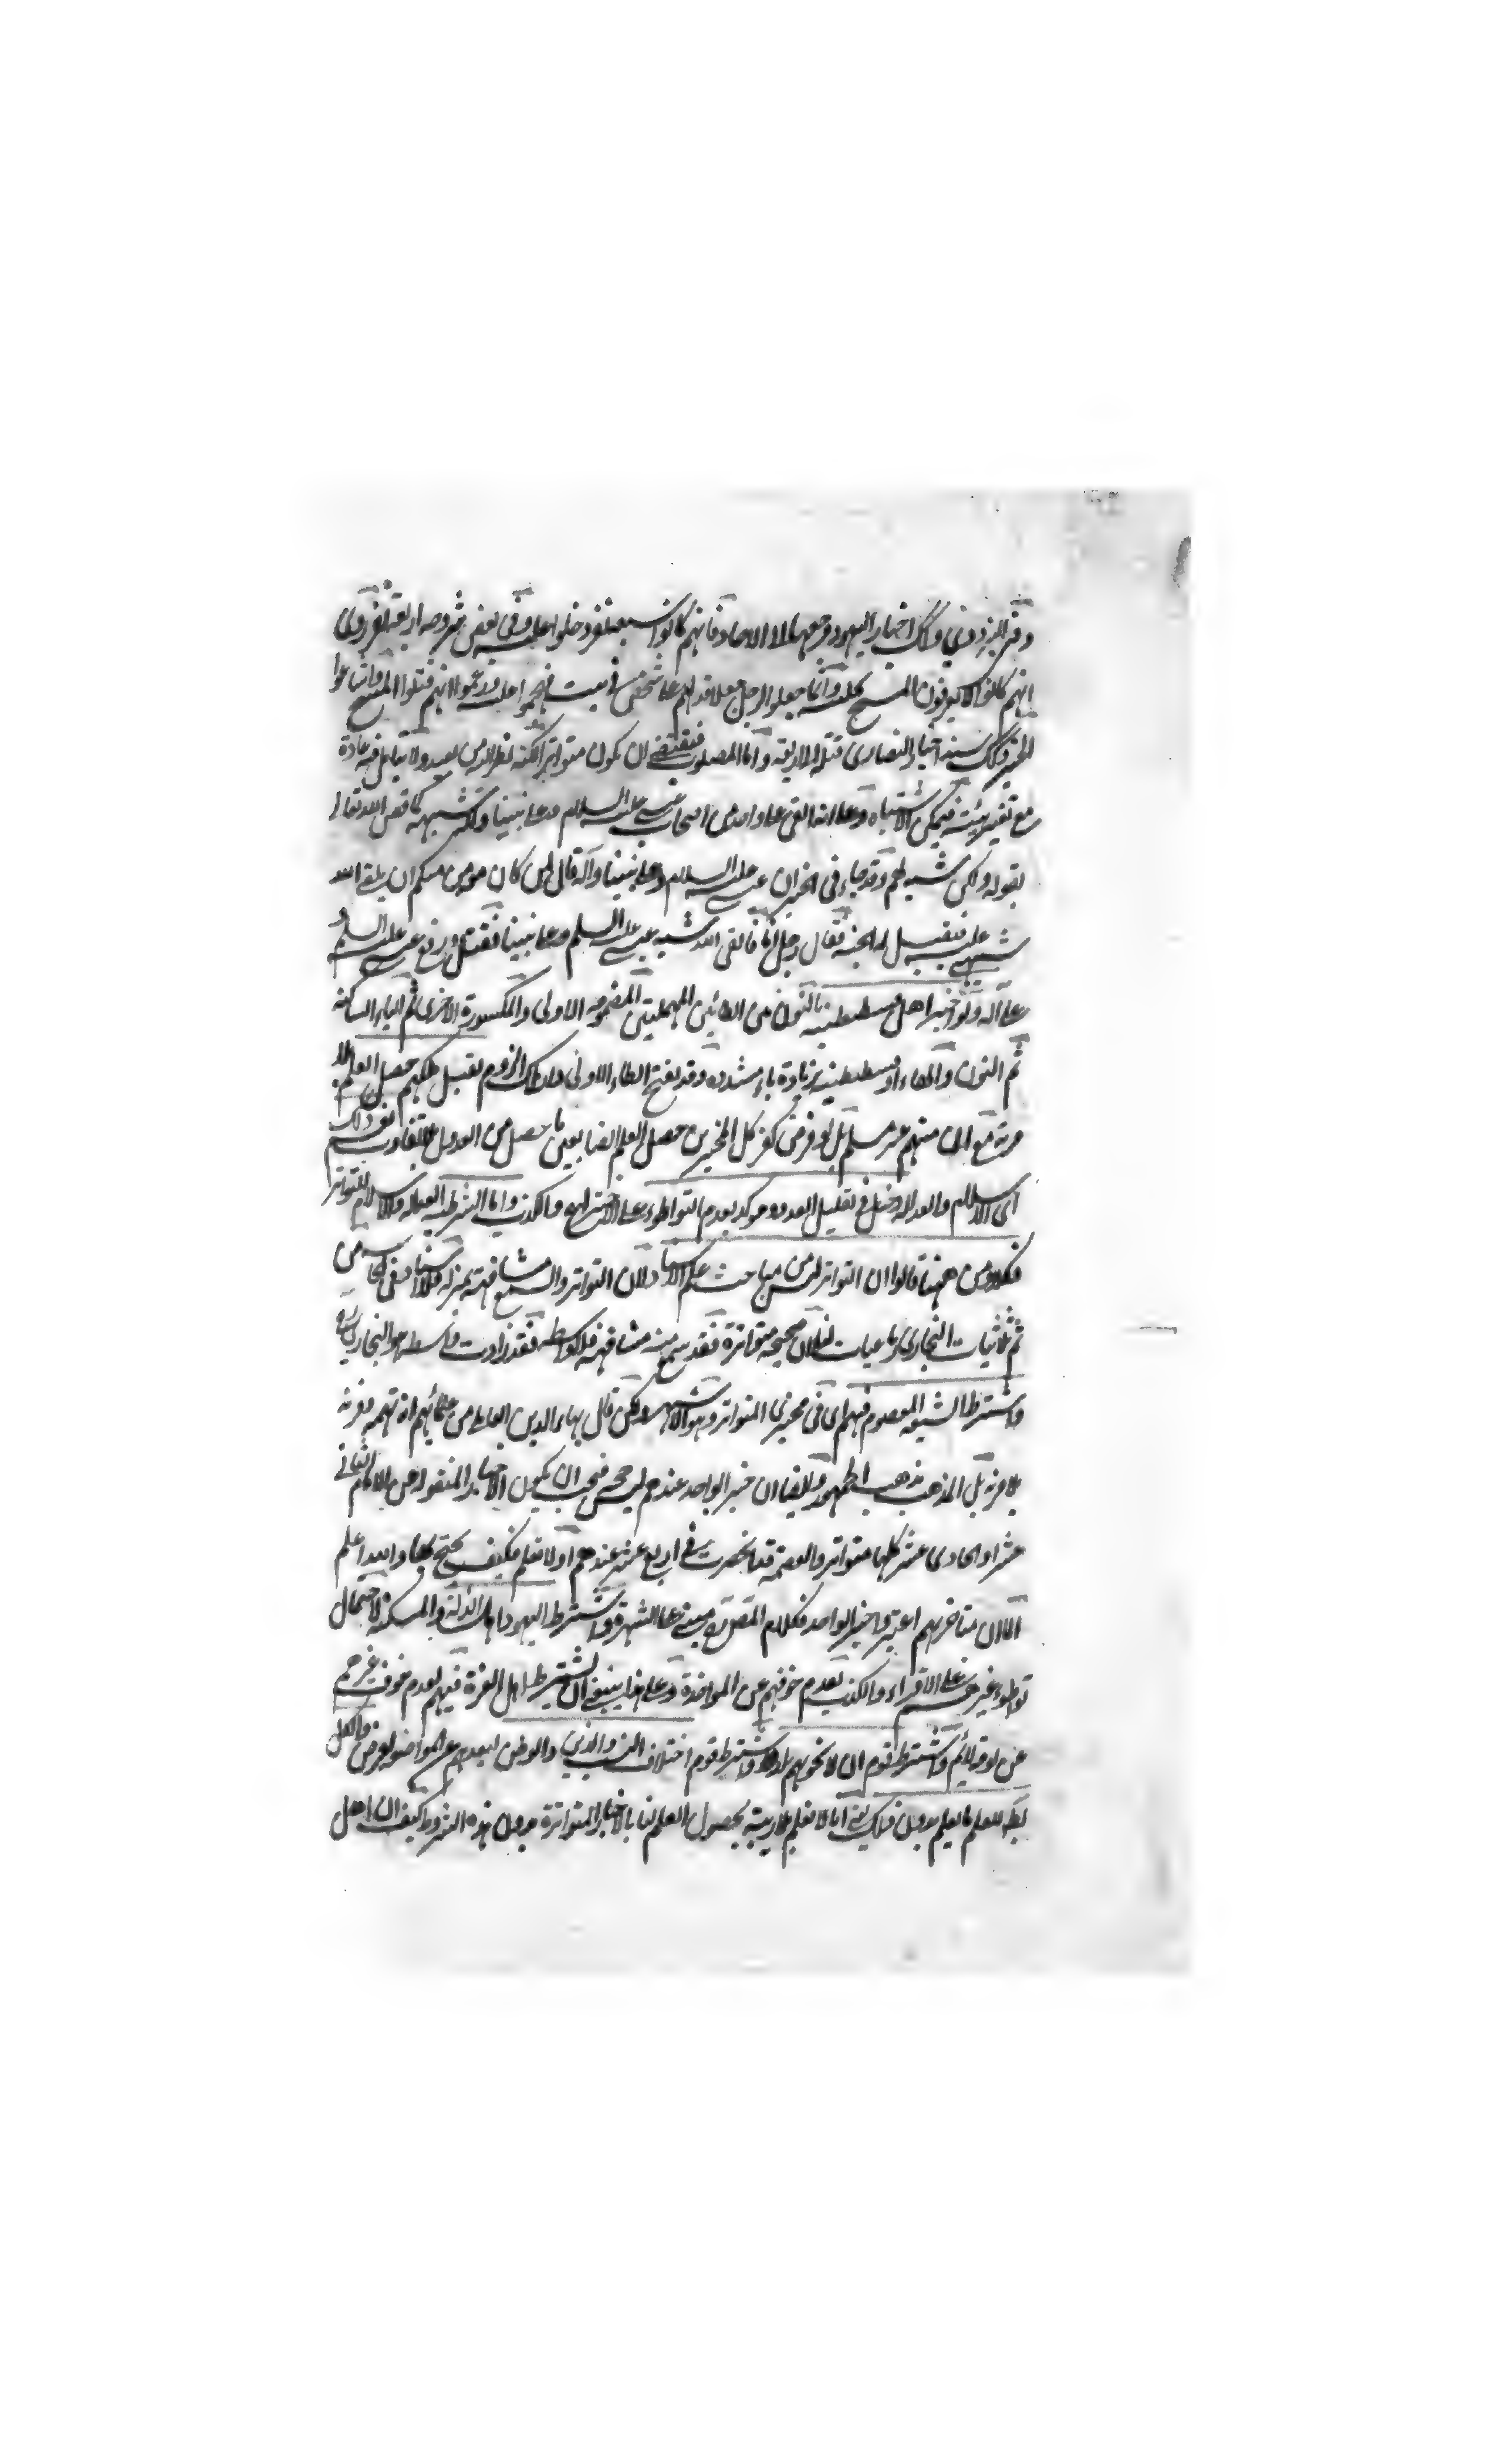 وفي البزدوي وكك اخبار اليهود مرجعها الى الاحاد فانهم كانوا سبعة نفر دخلوا عليه وفي بعض شروحه اربعة نفر روى
انهم كانوا لا يعرفون المسيح وانما جعلوا لرجل جعلا فدلهم على شخص في بيت فهجموا عليه وزعموا انهم قتلوا المسيح واشاعوا
الخبر وكك سند اخبار النصارى قتله الى الاربعة واما المصلوب فيقتضي ان يكون متواترا لكنه نظر اليه من بعيد ولا يتامل فيه عادة
مع تغير هيئته فيمكن الاشتباه وعلى انه القى على واحد من اصحاب عيسى عليه السلام وعلى نبينا وآله شبهه كما قص الله تعالى
بقوله ولكن شبه لهم وقد جاء في الخبر ان عيسى عليه السلام وعلى نبينا وآله قال لمن كان معه من منكم ان يلقي الله
شبهي عليه فيقتل له الجنة فقال رجل انا فالقى الله شبه عيسى عليه السلم وعلى نبينا فقتل ورفع عيسى عليه السلم
على آله ولو اخبر اهل قسطنطينية بالنون من الطائين المهملتين المضمومة الاولى والمكسورة الاخرى ثم الياء الساكنة
ثم النون والهاء او قسطنطينية بزيادة ياء مشددة وقد يفتح الطاء الاولى دار ملك الروم بقتل ملكهم حصل العلم
مرية مع ان منهم غير مسلم بل لو فرض كفر كل المخبرين حصل العلم ايضا بعين ما حصل من العدول بلا تفاوت نعم ذلك
اي الاسلام والعدالة دخل في تقليل العدد وموكد بعدم التواطؤ على الاشتراهم والكذب واما الشرطية العدالة والاسلام للتواتر
فكلا ومن ههنا قالوا ان التواتر ليس من مباحث علم الاسناد لان التواتر والسمع مشافهة بمنزلة فلا اسناد في الحاسة من
ثم ثلاثيات البخاري رباعيات لفلان صحيحة متواترة فقد سمع منه مشافهة فلا واسطة فقد زادت واسطة هو البخاري
واشترط الشيعة المعصوم فيهم اي في مخبري المتواتر وهو الاشهر ولكن قال بهاء الدين العاملي من علمائهم انه تهمة و فرية
بلا فرية بل المذهب مذهب الجمهور وايضا ان خبر الواحد عندهم ليس بحجة فيجب ان يكون الاخبار المنقولة عن الامام الثاني
عشر او الحادي عشر كلها متواترة والعصمة قد انحصرت في اربع عشر عندهم اولا نعلم فكيف يحتج بها والله اعلم
الا ان متاخريهم اعتبروا خبر الواحد فكلام المصنف مبني على الشهرة واشترط اليهود اهل الذلة والمسكنة لاحتمال
تواطؤ غيرهم على الافتراء والكذب بعدم خوفهم عن المواخذة وعلى هذا ينبغي ان يشترط اهل العزة فيهم لعدم خوف غيرهم
عن لومة لائم واشترط قوم ان لا تحويهم بلد واشترط قوم اختلاف النسب والدين والوطن لبعدهم عن المواضعة لغرض والكل
بط للعلم بالعلم بدون ذلك يعني انا لا نعلم بلا ريبة بحصول العلم لنا بالاخبار المتواترة بدون هذه الشروط كيف ان اهل